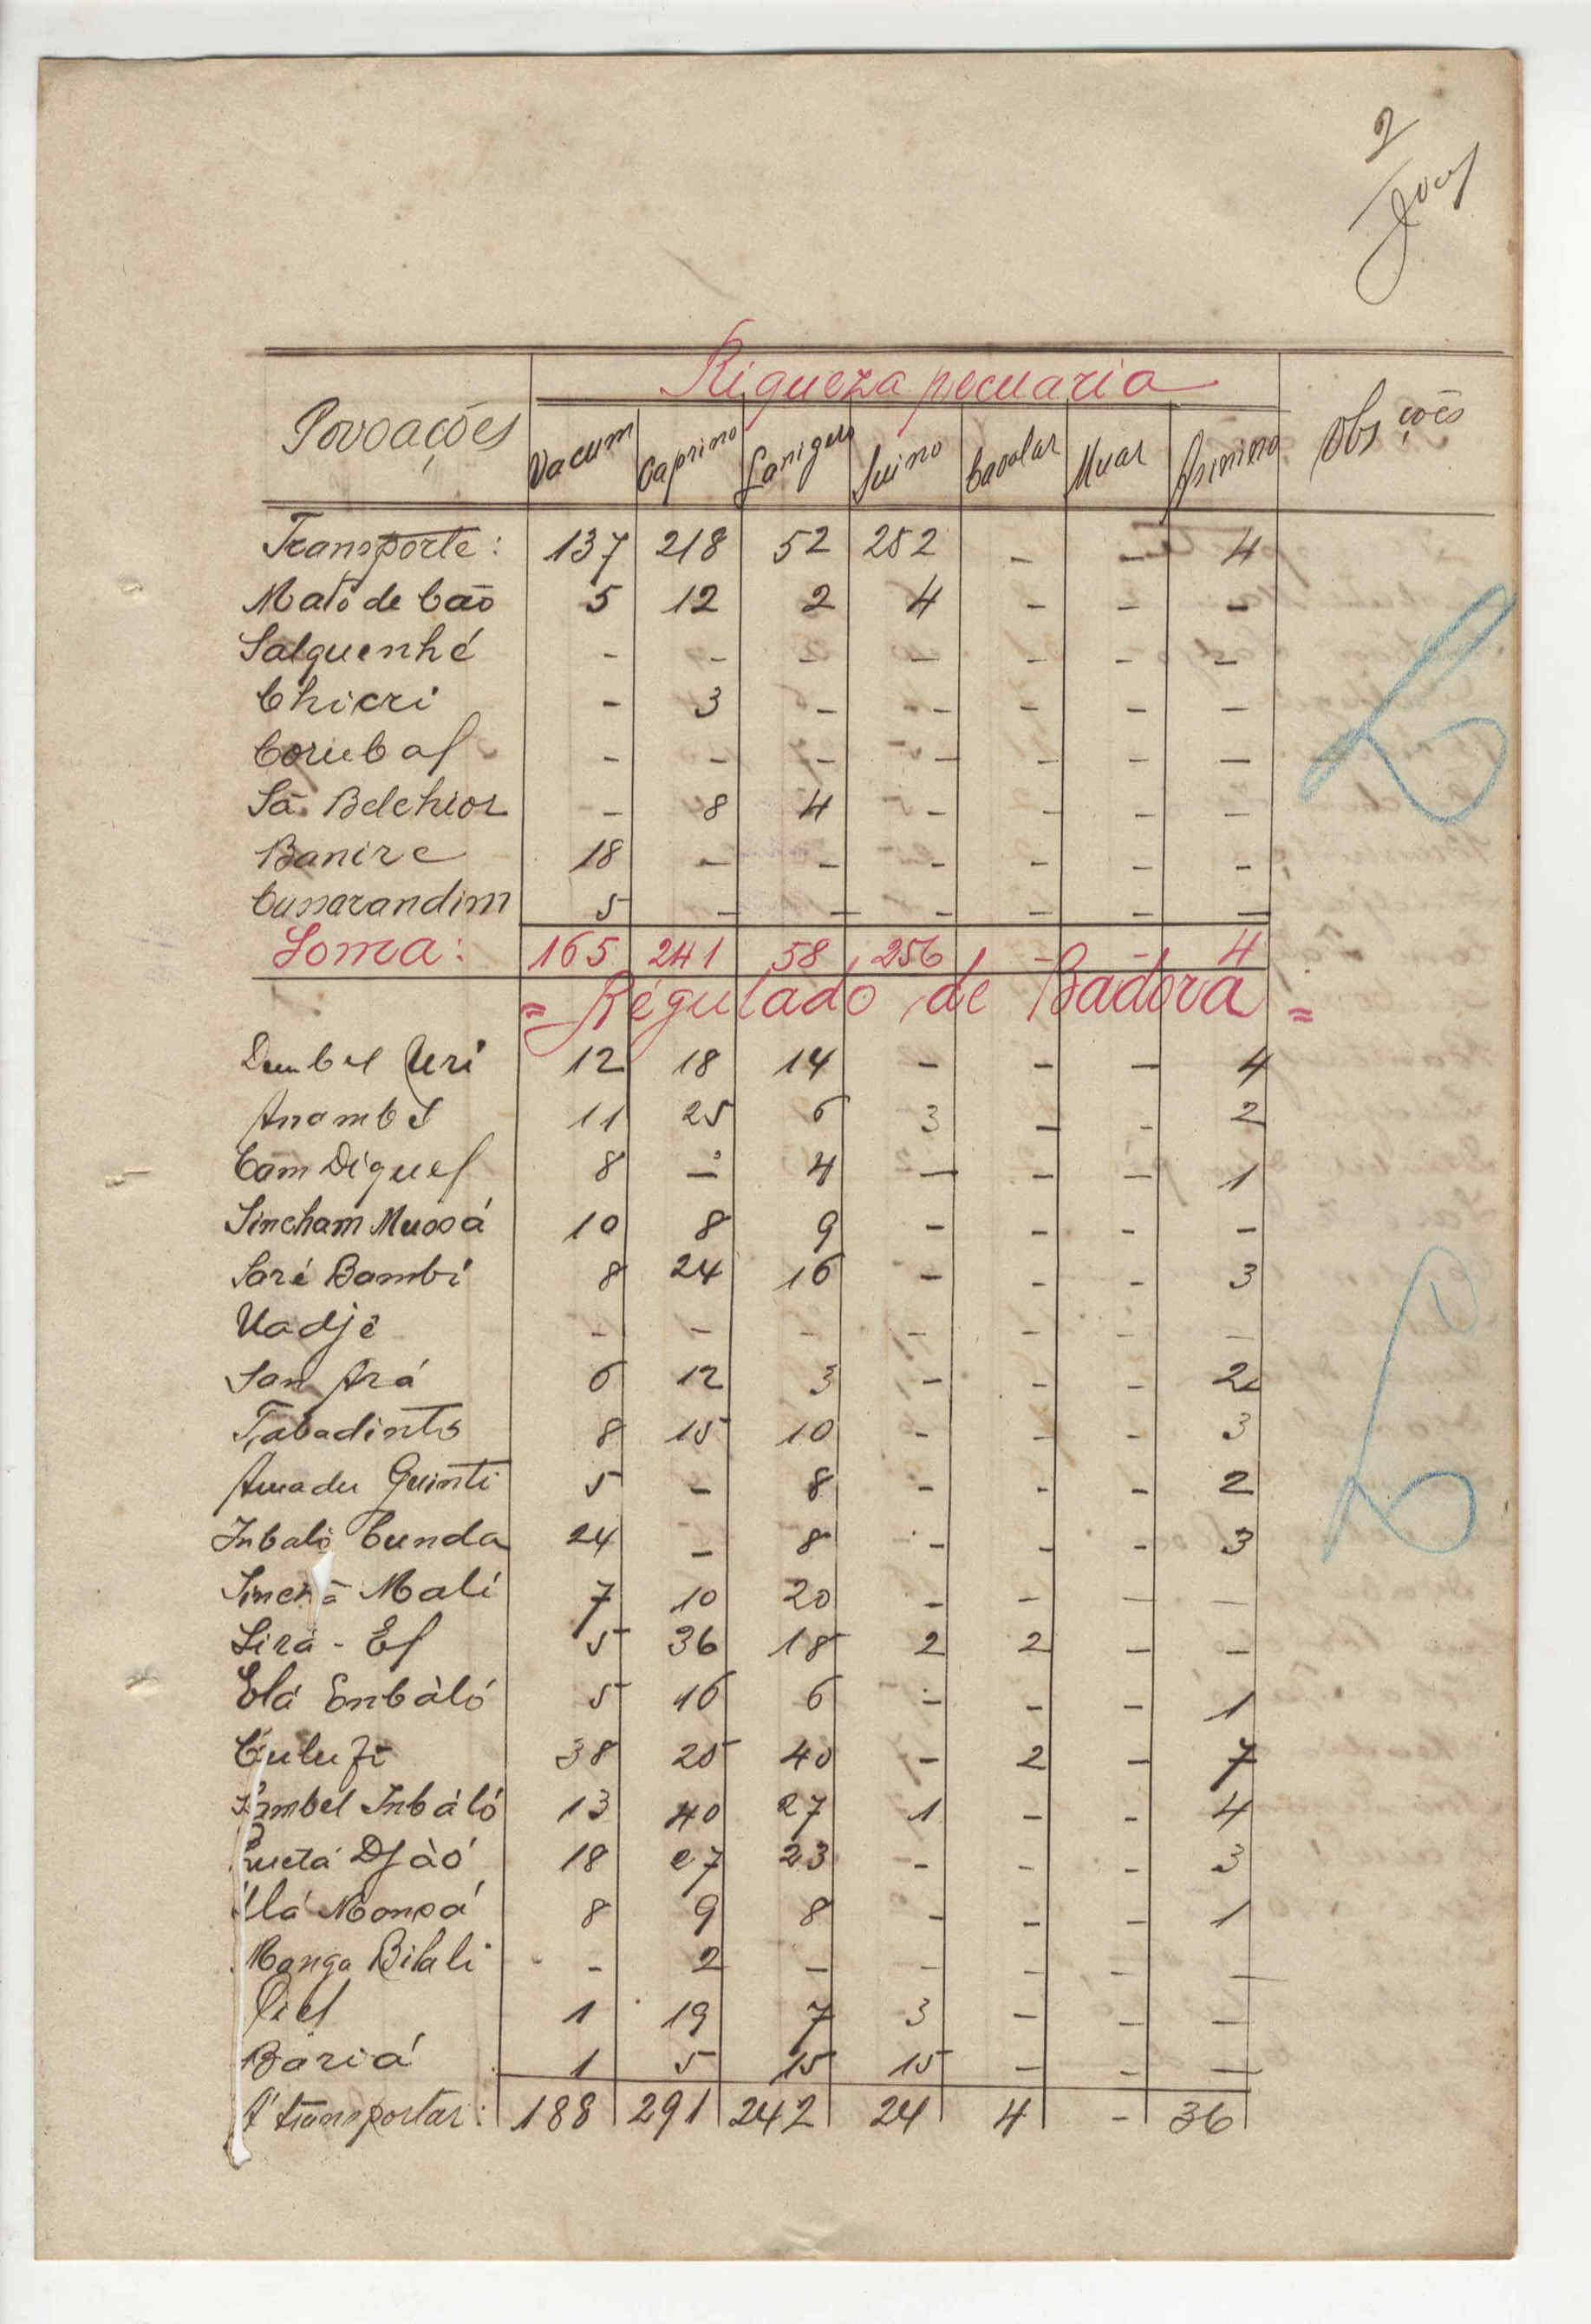 2
Riqueza pecuaria
Povoações Vacum Caprino Lanigero Suino Cavalar Muar Asinino Obs ções
Transporte: 137 218 52 252 - - 4
Mato de Cão 5 12 2 4 - - -
Salquenhé - - - - - - -
Chicri - 3 - - - - -
Corubal - - - - - - -
Sã Belchior - 8 4 - - - -
Banire 18 - - - - - -
Cussarandim 5 - - - - - -
Soma: 165 241 58 256 - - 4
= Régulado de Badorá =
Dembel Uri 12 18 14 - - - 4
Anambé 11 25 6 3 - - 2
Cam Diguel 8 - 4 - - - 1
Sincham Mussá 10 8 9 - - - -
Saré Bambi 8 24 16 - - - 3
Uadjé - - - - - - -
San Ará 6 12 3 - - - 2
Tabadinto 8 15 10 - - - 3
Amadu Quinti 5 - 8 - - - 2
Inbaló Cunda 24 - 8 - - - 3
Sinchã Mali 7 10 20 - - - -
Sirá - El 5 36 18 2 2 - -
Elá Enbàló 5 16 6 - - - 1
Culufi 38 20 40 - 2 - 7
Sambel Inbáló 13 40 27 1 - - 4
Djàó 18 27 23 - - - 3
Mansá 8 9 8 - - - 1
Manga Bilali - 2 - - - - -
1 19 7 3 - - -
Bariá 1 5 15 15 - - -
A transportar: 188 291 242 24 4 - 36